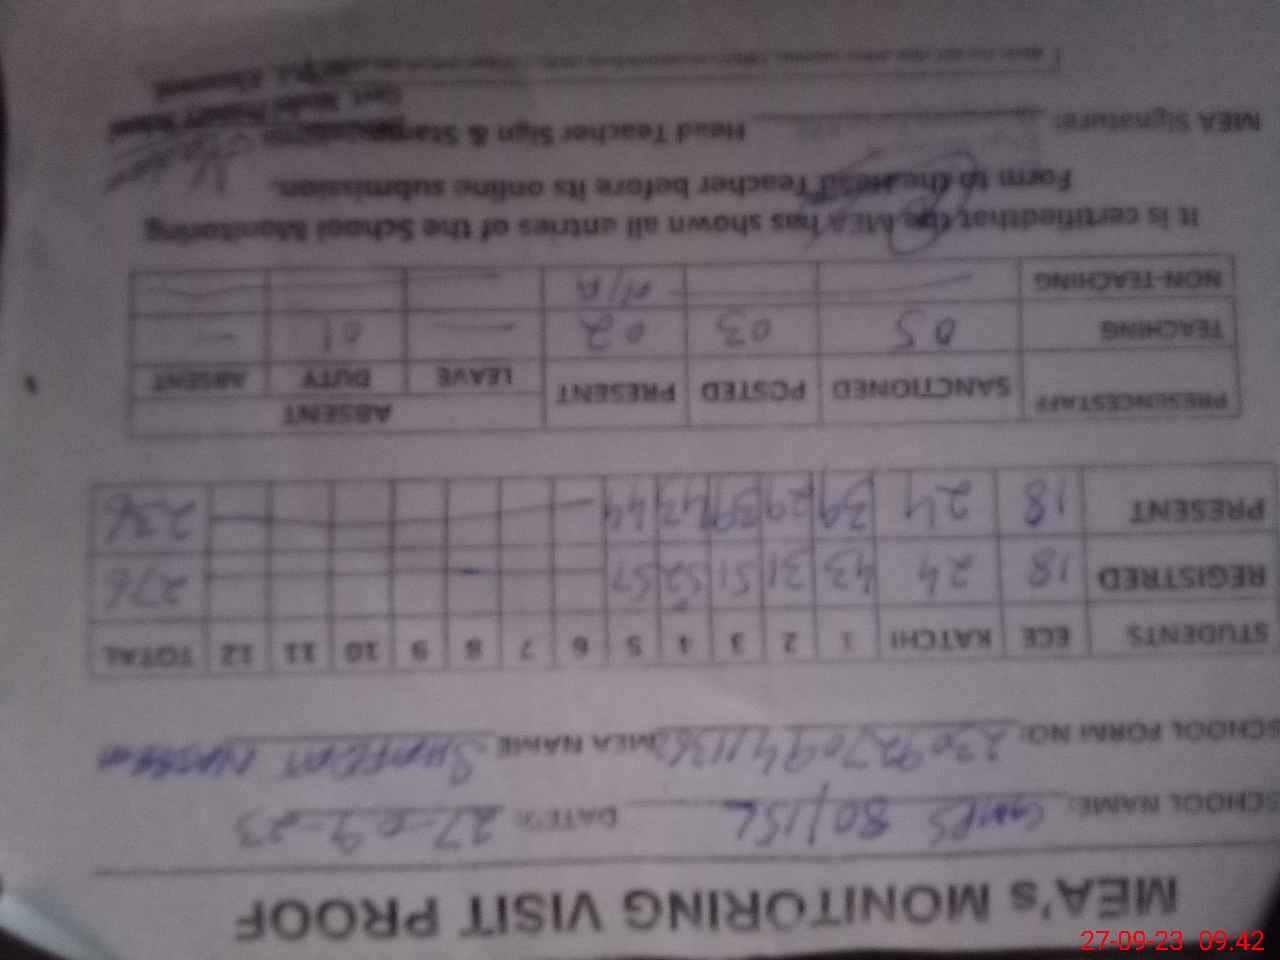 MEA's MONITORING VISIT PROOF
SCHOOL NAME: GMPS 80/15L DATE'S: 27-09-23
SCHOOL FORM NO: MEA NAME SHAFEQAT
STUDENTS ECE KATCHI 1 2 3 4 5 6 7 8 9 10 11 12 TOTAL
REGISTRED 18 24 43 31 51 52 57 276
PRESENT 18 24 39 29 39 43 44 236
PRESENCESTAFF SANCTIONED POSTED PRESENT ABSENT
LEAVE DUTY ABSENT
TEACHING 05 03 02 — 01 —
NON-TEACHING N/A
It is certifiedthat the MEA has shown all entries of the School Monitoring
Form to the Head Teacher before its online submission.
MEA Signature: Head Teacher Sign & Stamp
27-09-23 09:42